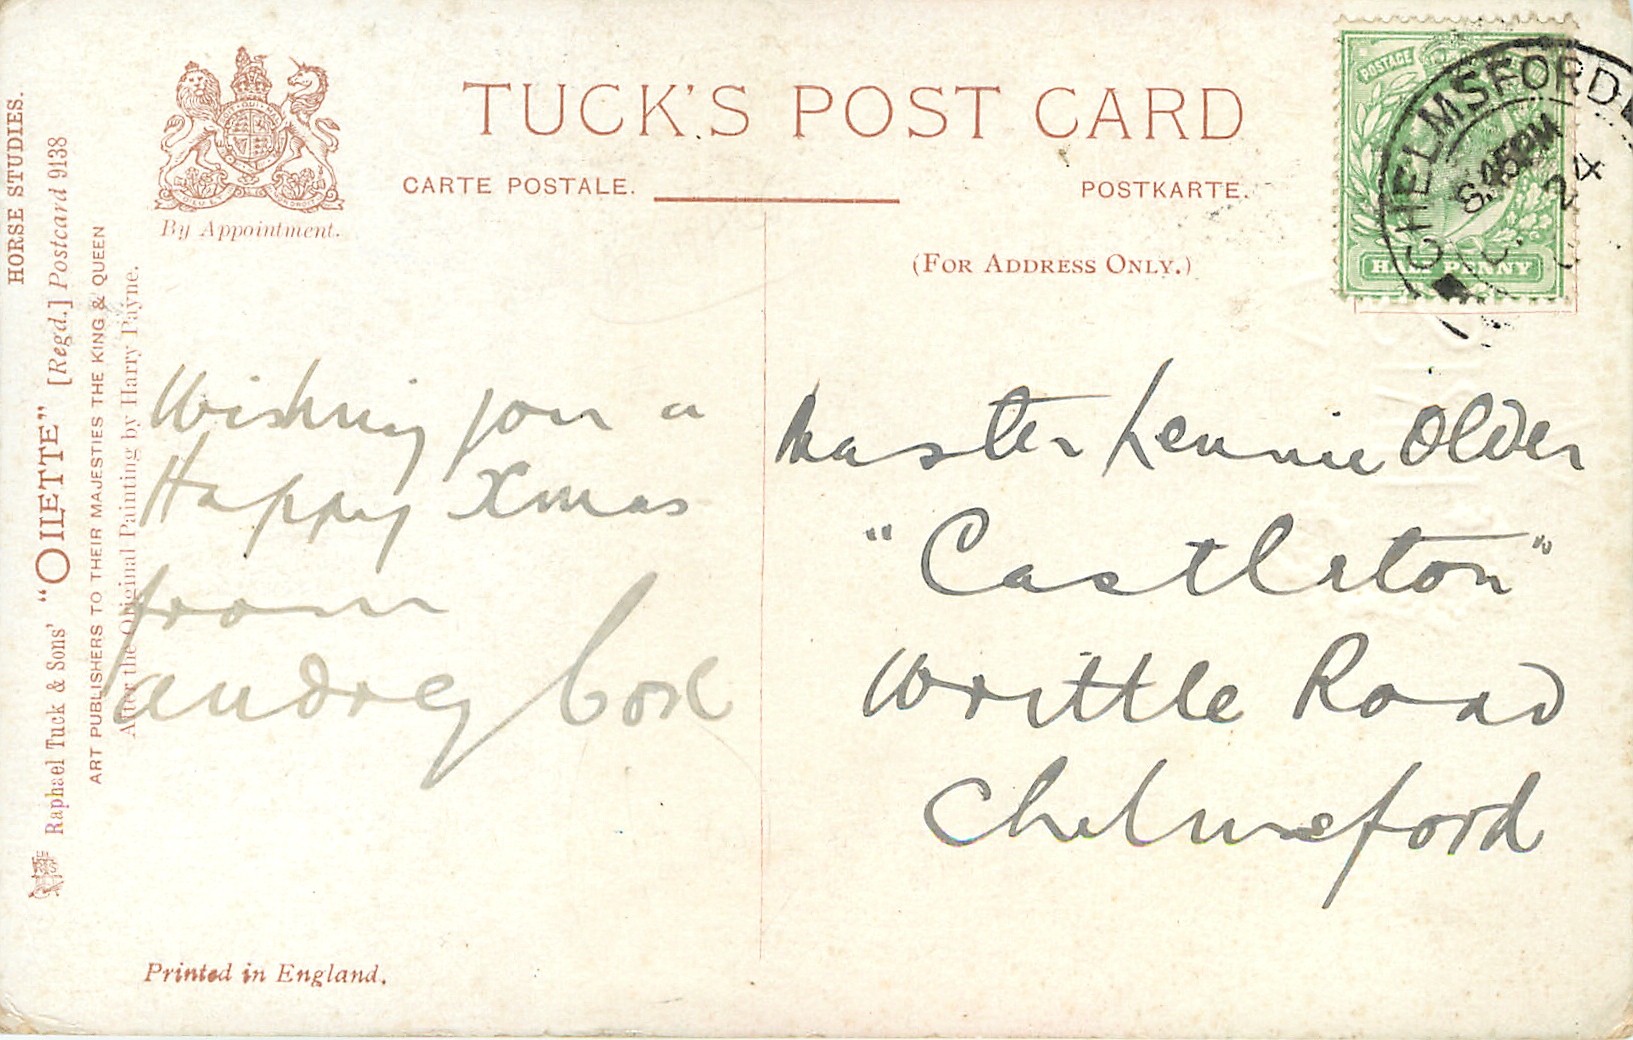 TUCK'S POST CARD
CARTE POSTALE.
POSTKARTE.
By Appointment.
(FOR ADDRESS ONLY.)
POSTAGE
HALF PENNY
CHELMSFORD
8.45PM
24
HORSE STUDIES.
Raphael Tuck & Sons' "OILETTE" [Regd.] Postcard 9138
ART PUBLISHERS TO THEIR MAJESTIES THE KING & QUEEN
After the Original Painting by Harry Payne.
Wishing you a
Happy Xmas
from
Audrey Cox
Master Lennie Older
"Castleton"
Writtle Road
Chelmsford
Printed in England.